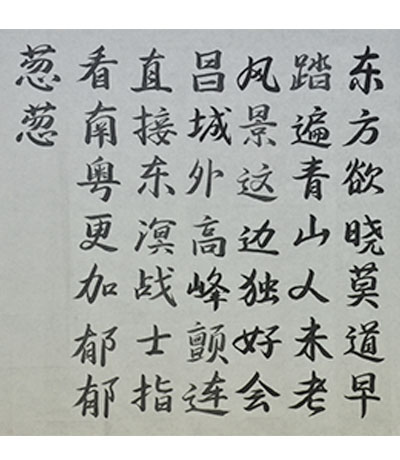 东方欲晓莫道早
踏遍青山人未老
风景这边独好会
昌城外高峰颠连
直接东溟战士指
看南粤更加郁郁
葱葱